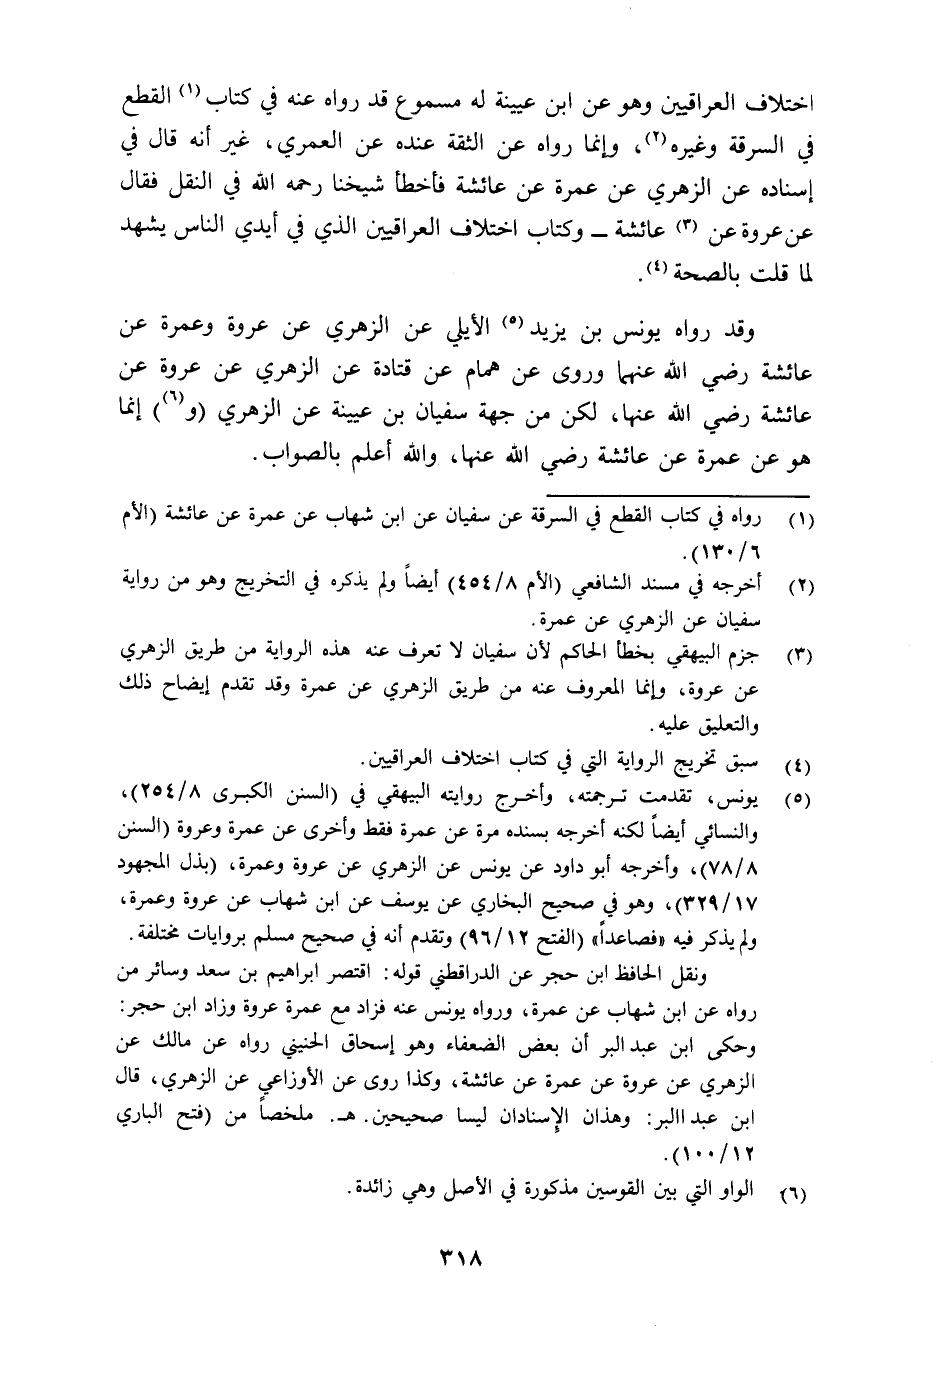 اختلاف العراقيين وهو عن ابن عيينة له مسموع قد رواه عنه في كتاب (١) القطع
في السرقة وغيره(٢)، وإنما رواه عن الثقة عنده عن العمري، غير أنه قال في
إسناده عن الزهري عن عمرة عن عائشة فأخطأ شيخنا رحمه الله في النقل فقال
عن عروة عن (٣) عائشة ــ وكتاب اختلاف العراقيين الذي في أيدي الناس يشهد
لما قلت بالصحة (٤).
وقد رواه يونس بن يزيد (٥) الأيلي عن الزهري عن عروة وعمرة عن
عائشة رضي الله عنها وروى عن همام عن قتادة عن الزهري عن عروة عن
عائشة رضي الله عنها، لكن من جهة سفيان بن عيينة عن الزهري (و(٦)) إنما
هو عن عمرة عن عائشة رضي الله عنها، والله أعلم بالصواب.
(١) رواه في كتاب القطع في السرقة عن سفيان عن ابن شهاب عن عمرة عن عائشة (الأم
٦/١٣٠).
(٢) أخرجه في مسند الشافعي (الأم ٨/٤٥٤) أيضاً ولم يذكره في التخريج وهو من رواية
سفيان عن الزهري عن عمرة.
(٣) جزم البيهقي بخطأ الحاكم لأن سفيان لا تعرف عنه هذه الرواية من طريق الزهري
عن عروة، وإنما المعروف عنه من طريق الزهري عن عمرة وقد تقدم إيضاح ذلك
والتعليق عليه.
(٤) سبق تخريج الرواية التي في كتاب اختلاف العراقيين.
(٥) يونس، تقدمت ترجمته، وأخرج روايته البيهقي في (السنن الكبرى ٨/٢٥٤)،
والنسائي أيضاً لكنه أخرجه بسنده مرة عن عمرة فقط وأخرى عن عمرة وعروة (السنن
٨/٧٨)، وأخرجه أبو داود عن يونس عن الزهري عن عروة وعمرة، (بذل المجهود
١٧/٣٢٩)، وهو في صحيح البخاري عن يوسف عن ابن شهاب عن عروة وعمرة،
ولم يذكر فيه «فصاعداً» (الفتح ١٢/٩٦) وتقدم أنه في صحيح مسلم بروايات مختلفة.
ونقل الحافظ ابن حجر عن الدراقطني قوله: اقتصر ابراهيم بن سعد وسائر من
رواه عن ابن شهاب عن عمرة، ورواه يونس عنه فزاد مع عمرة عروة وزاد ابن حجر:
وحكى ابن عبد البر أن بعض الضعفاء وهو إسحاق الحنيني رواه عن مالك عن
الزهري عن عروة عن عمرة عن عائشة، وكذا روى عن الأوزاعي عن الزهري، قال
ابن عبد االبر: وهذان الإسنادان ليسا صحيحين. هـ. ملخصاً من (فتح الباري
١٢/١٠٠).
(٦) الواو التي بين القوسين مذكورة في الأصل وهي زائدة.
٣١٨